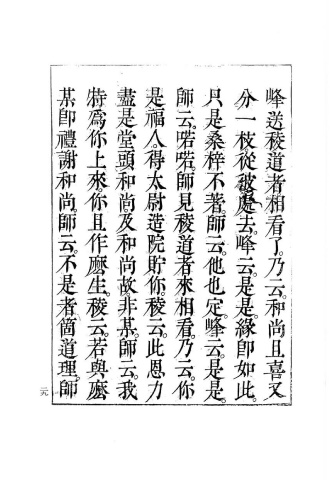 峰送稜道者相看了。乃云。和尚且喜又
分一枝從彼處去。峰云。是是。緣卽如此。
只是桑梓不著。師云。他也定。峰云。是是。
師云。喏喏。師見稜道者來相看。乃云。你
是福人。得太尉造院貯你。稜云。此恩力
盡是堂頭和尚及和尚故。非某。師云。我
特爲你上來。你且作麼生。稜云。若與麼
某卽禮謝和尚。師云。不是者箇道理。師
二九